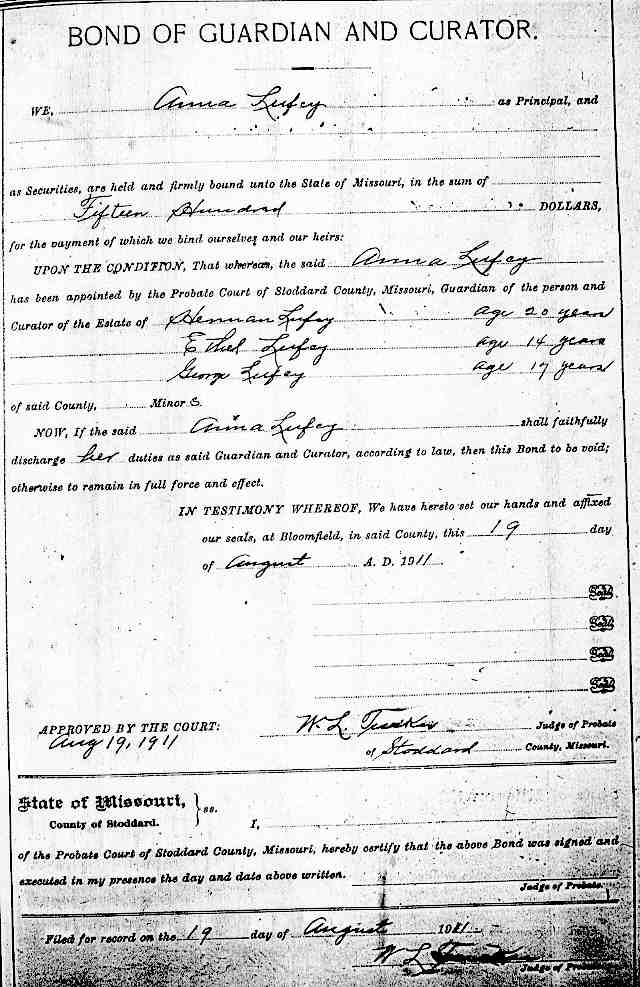 BOND OF GUARDIAN AND CURATOR.
WE, Anna Lufcy as Principal, and
as Securities, are held and firmly bound unto the State of Missouri, in the sum of
Fifteen Hundred DOLLARS,
for the payment of which we bind ourselves and our heirs:
UPON THE CONDITION, That whereas, the said Anna Lufcy
has been appointed by the Probate Court of Stoddard County, Missouri, Guardian of the person and
Curator of the Estate of Herman Lufcy age 20 years
Ethel Lufcy age 14 years
George Lufcy age 17 years
of said County, Minors
NOW, If the said Anna Lufcy shall faithfully
discharge her duties as said Guardian and Curator, according to law, then this Bond to be void;
otherwise to remain in full force and effect.
IN TESTIMONY WHEREOF, We have hereto set our hands and affixed
our seals, at Bloomfield, in said County, this 19 day
of August A. D. 1911
Seal
Seal
Seal
Seal
APPROVED BY THE COURT: W. L. Judge of Probate
Aug 19, 1911 of Stoddard County, Missouri.
State of Missouri, } ss.
County of Stoddard. I,
of the Probate Court of Stoddard County, Missouri, hereby certify that the above Bond was signed and
executed in my presence the day and date above written.
Judge of Probate.
Filed for record on the 19 day of August 1911
W L
Judge of Probate